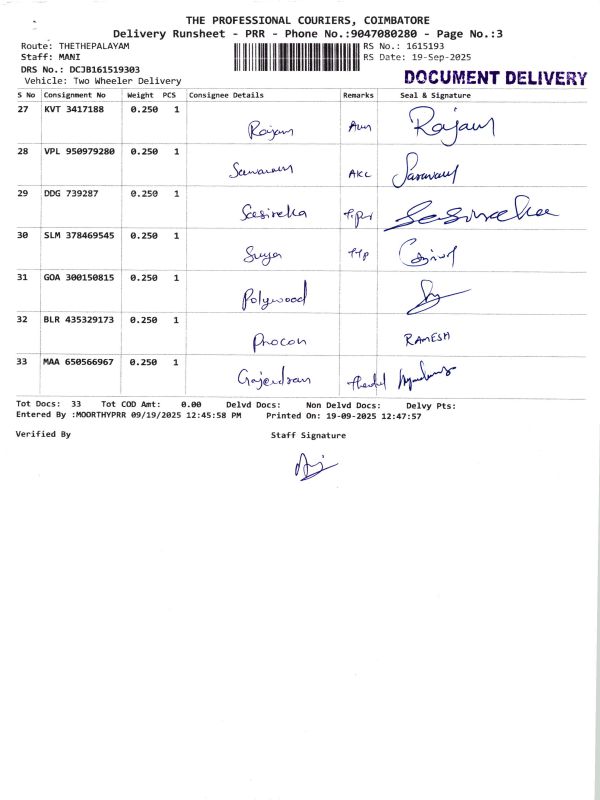 THE PROFESSIONAL COURIERS, COIMBATORE
Delivery Runsheet - PRR - Phone No.:9047080280 - Page No.:3
Route: THETHEPALAYAM RS No.: 1615193
Staff: MANI RS Date: 19-Sep-2025
DRS No.: DCJB161519303
Vehicle: Two Wheeler Delivery DOCUMENT DELIVERY
S No Consignment No Weight PCS Consignee Details Remarks Seal & Signature
27 KVT 3417188 0.250 1 Rajam Rajam
28 VPL 950979280 0.250 1 AKC Saravan
29 DDG 739287 0.250 1 Sasireka
30 SLM 378469545 0.250 1 Surya
31 GOA 300150815 0.250 1 Polywood
32 BLR 435329173 0.250 1 Procon RAMESH
33 MAA 650566967 0.250 1 Gajendran
Tot Docs: 33 Tot COD Amt: 0.00 Delvd Docs: Non Delvd Docs: Delvy Pts:
Entered By :MOORTHYPRR 09/19/2025 12:45:58 PM Printed On: 19-09-2025 12:47:57
Verified By Staff Signature